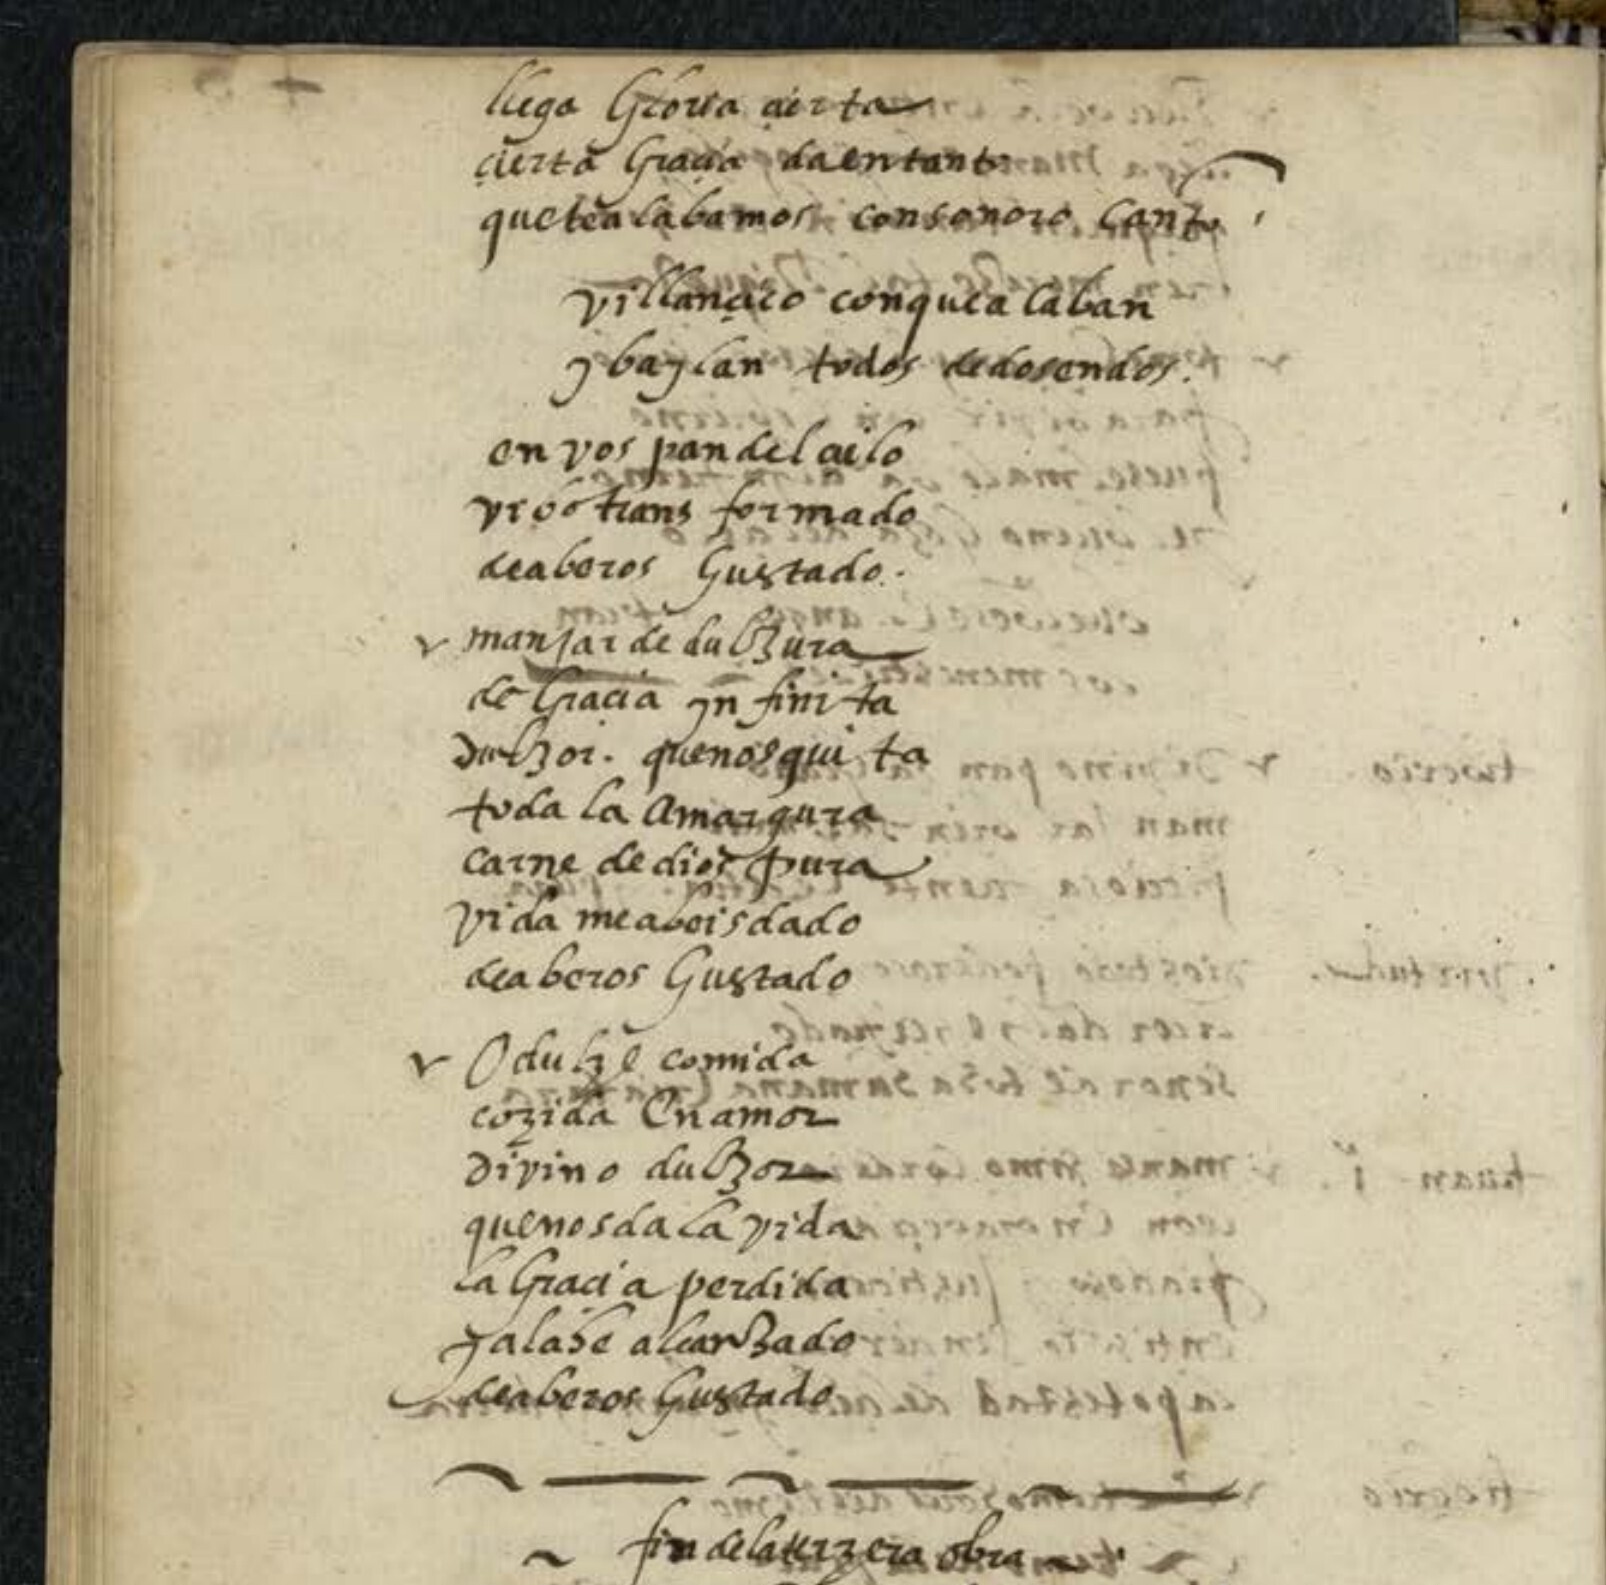 llega Gloria çierta
çierta Graçia da en tanto
que te alabamos con sonoro Canto
villançico con que alaban
y baylan todos de dos en dos.
en vos pan del çielo
vi os trans formado
de aberos Gustado.
manjar de dulzura
de Graçia yn finita
Dulzor. que nos quita
toda la Amargura
carne de dios pura
vida me abeis dado
de aberos Gustado
O dulze comida
cozida En amor
Divino dulzor
que nos da la vida
la Graçia perdida
ya la he alcanzado
de aberos Gustado
fin de la terzera obra